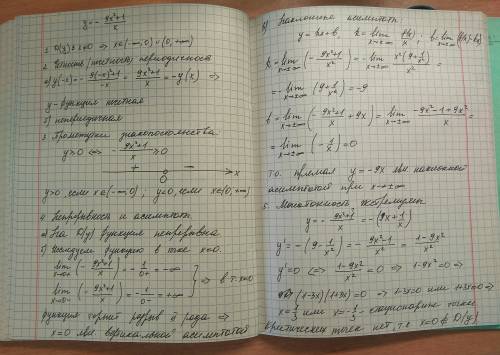 y = - (9x²+1)/x
1. D(y): x≠0 ⇒ x∈(-∞,0)∪(0,+∞)
2. Чётность (нечётность) периодичность
а) y(-x) = - (9(-x)²+1)/(-x) = (9x²+1)/x = -y(x) ⇒
y- функция нечётная
б) непериодичная
3. Промежутки знакопостоянства
y≥0 ⇔ - (9x²+1)/x ≥ 0
+ - x
0
y>0 если x∈(-∞,0); y<0, если x∈(0,+∞)
4. Непрерывность и асимптоты
а) На D(y) функция непрерывна.
б) Исследуем функцию в т-ке x=0.
lim x→0+ (- (9x²+1)/x) = - 1/0+ = -∞
lim x→0- (- (9x²+1)/x) = - 1/0- = +∞
⇒ в т. x=0
функция терпит разрыв II рода ⇒
x=0 явл. вертикальной асимптотой
в) Наклонные асимптоты
y = kx+b, k = lim x→±∞ f(x)/x; b = lim x→±∞ (f(x)-kx)
k = lim x→±∞ (- (9x²+1)/x²) = - lim x→±∞ x²(9+1/x²)/x² =
= - lim x→±∞ (9+1/x²) = -9
b = lim x→±∞ (- (9x²+1)/x + 9x) = lim x→±∞ (-9x²-1+9x²)/x =
= lim x→±∞ (- 1/x) = 0
т.о. прямая y = -9x явл. наклонной
асимптотой при x→±∞
5. Монотонность экстремумы
y = - (9x²+1)/x = -(9x + 1/x)
y' = -(9 - 1/x²) = - (9x²-1)/x² = (1-9x²)/x²
y'=0 ⇔ (1-9x²)/x² = 0 ⇒ 1-9x²=0 ⇒
(1-3x)(1+3x)=0 ⇒ 1-3x=0 или 1+3x=0 ⇒
x = 1/3 или x = - 1/3 - стационарные точки
критических точек нет, т.к x=0 ∉ D(y)